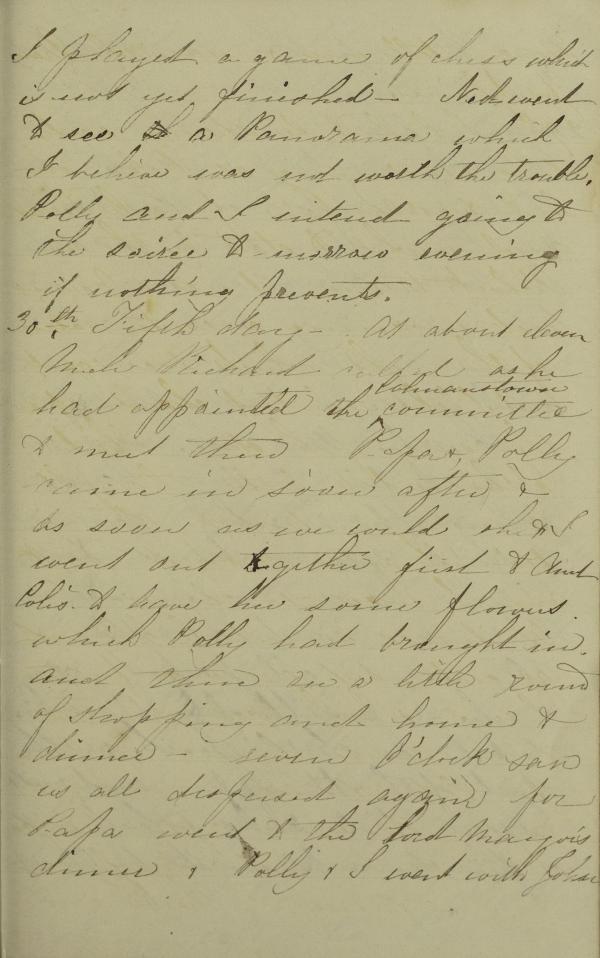 I played a game of chess which
is not yet finished - Ned went
to see a Panorama which
I believe was not worth the trouble.
Polly and I intend going to
the soirée to-morrow evening
if nothing prevents.
30th. Fifth day - At about eleven
Uncle Richard called as he
Colmanstown
had appointed the committee
to meet there Papa & Polly
came in soon after &
as soon as we could she & I
went out together first to Aunt
to leave her some flowers
which Polly had brought in.
and then on a little round
of shopping and home to
dinner - seven O'clock saw
us all dispersed again for
Papa went to the Lord Mayor's
dinner & Polly & I went with John